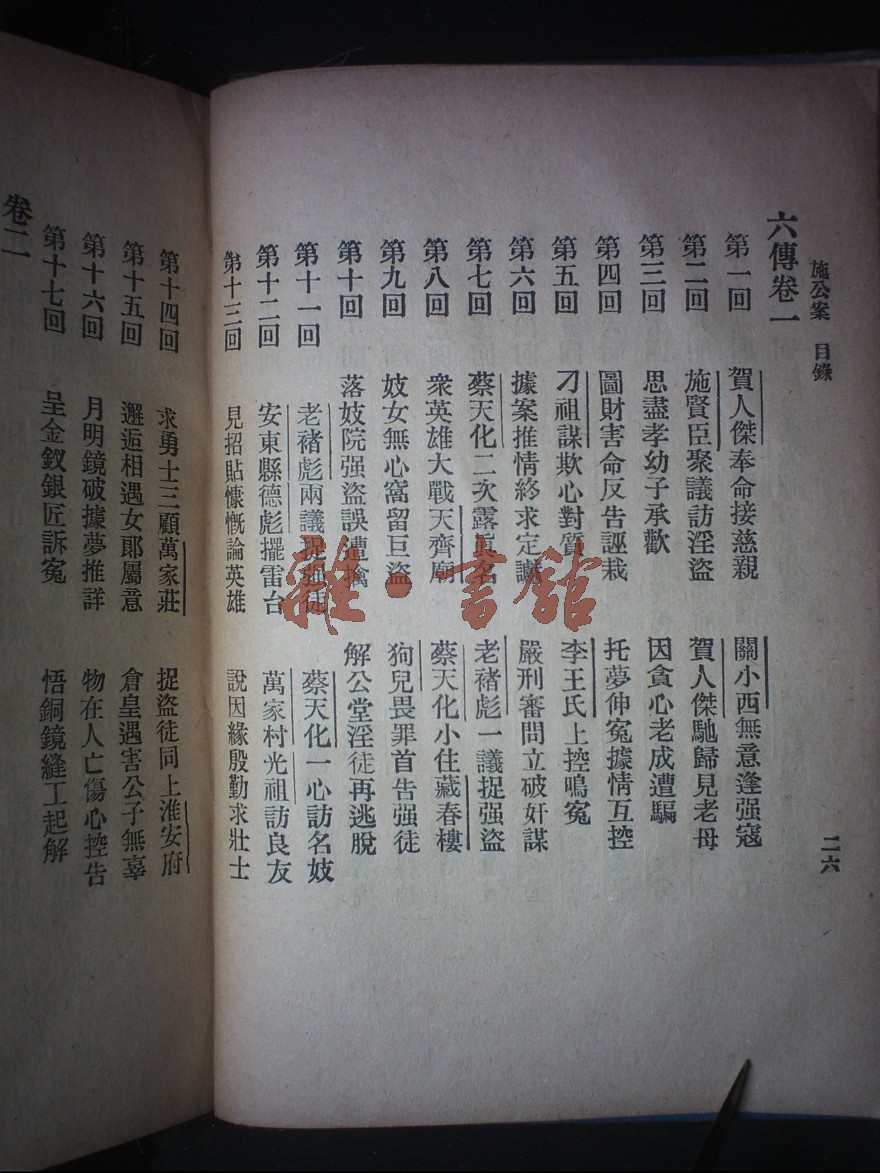 施公案 目錄 二六
六傳卷一
第一回 賀人傑奉命接慈親 關小西無意逢强寇
第二回 施賢臣聚議訪淫盜 賀人傑馳歸見老母
第三回 思盡孝幼子承歡 因貪心老成遭騙
第四回 圖財害命反告誣栽 托夢伸冤據情互控
第五回 刁祖謀欺心對質 李王氏上控鳴冤
第六回 據案推情終求定讞 嚴刑審問立破奸謀
第七回 蔡天化二次露眞名 老褚彪一議捉强盜
第八回 衆英雄大戰天齊廟 蔡天化小住藏春樓
第九回 妓女無心窩留巨盜 狗兒畏罪首吿强徒
第十回 落妓院强盜誤遭擒 解公堂淫徒再逃脫
第十一回 老褚彪兩議捉淫徒 蔡天化一心訪名妓
第十二回 安東縣德彪擺雷台 萬家村光祖訪良友
第十三回 見招貼慷慨論英雄 說因緣殷勤求壯士
第十四回 求勇士三顧萬家莊 捉盜徒同上淮安府
第十五回 邂逅相遇女郞屬意 倉皇遇害公子無辜
第十六回 月明鏡破據夢推詳 物在人亡傷心控告
第十七回 呈金釵銀匠訴冤 悟銅鏡縫工起解
卷二
雜·書館